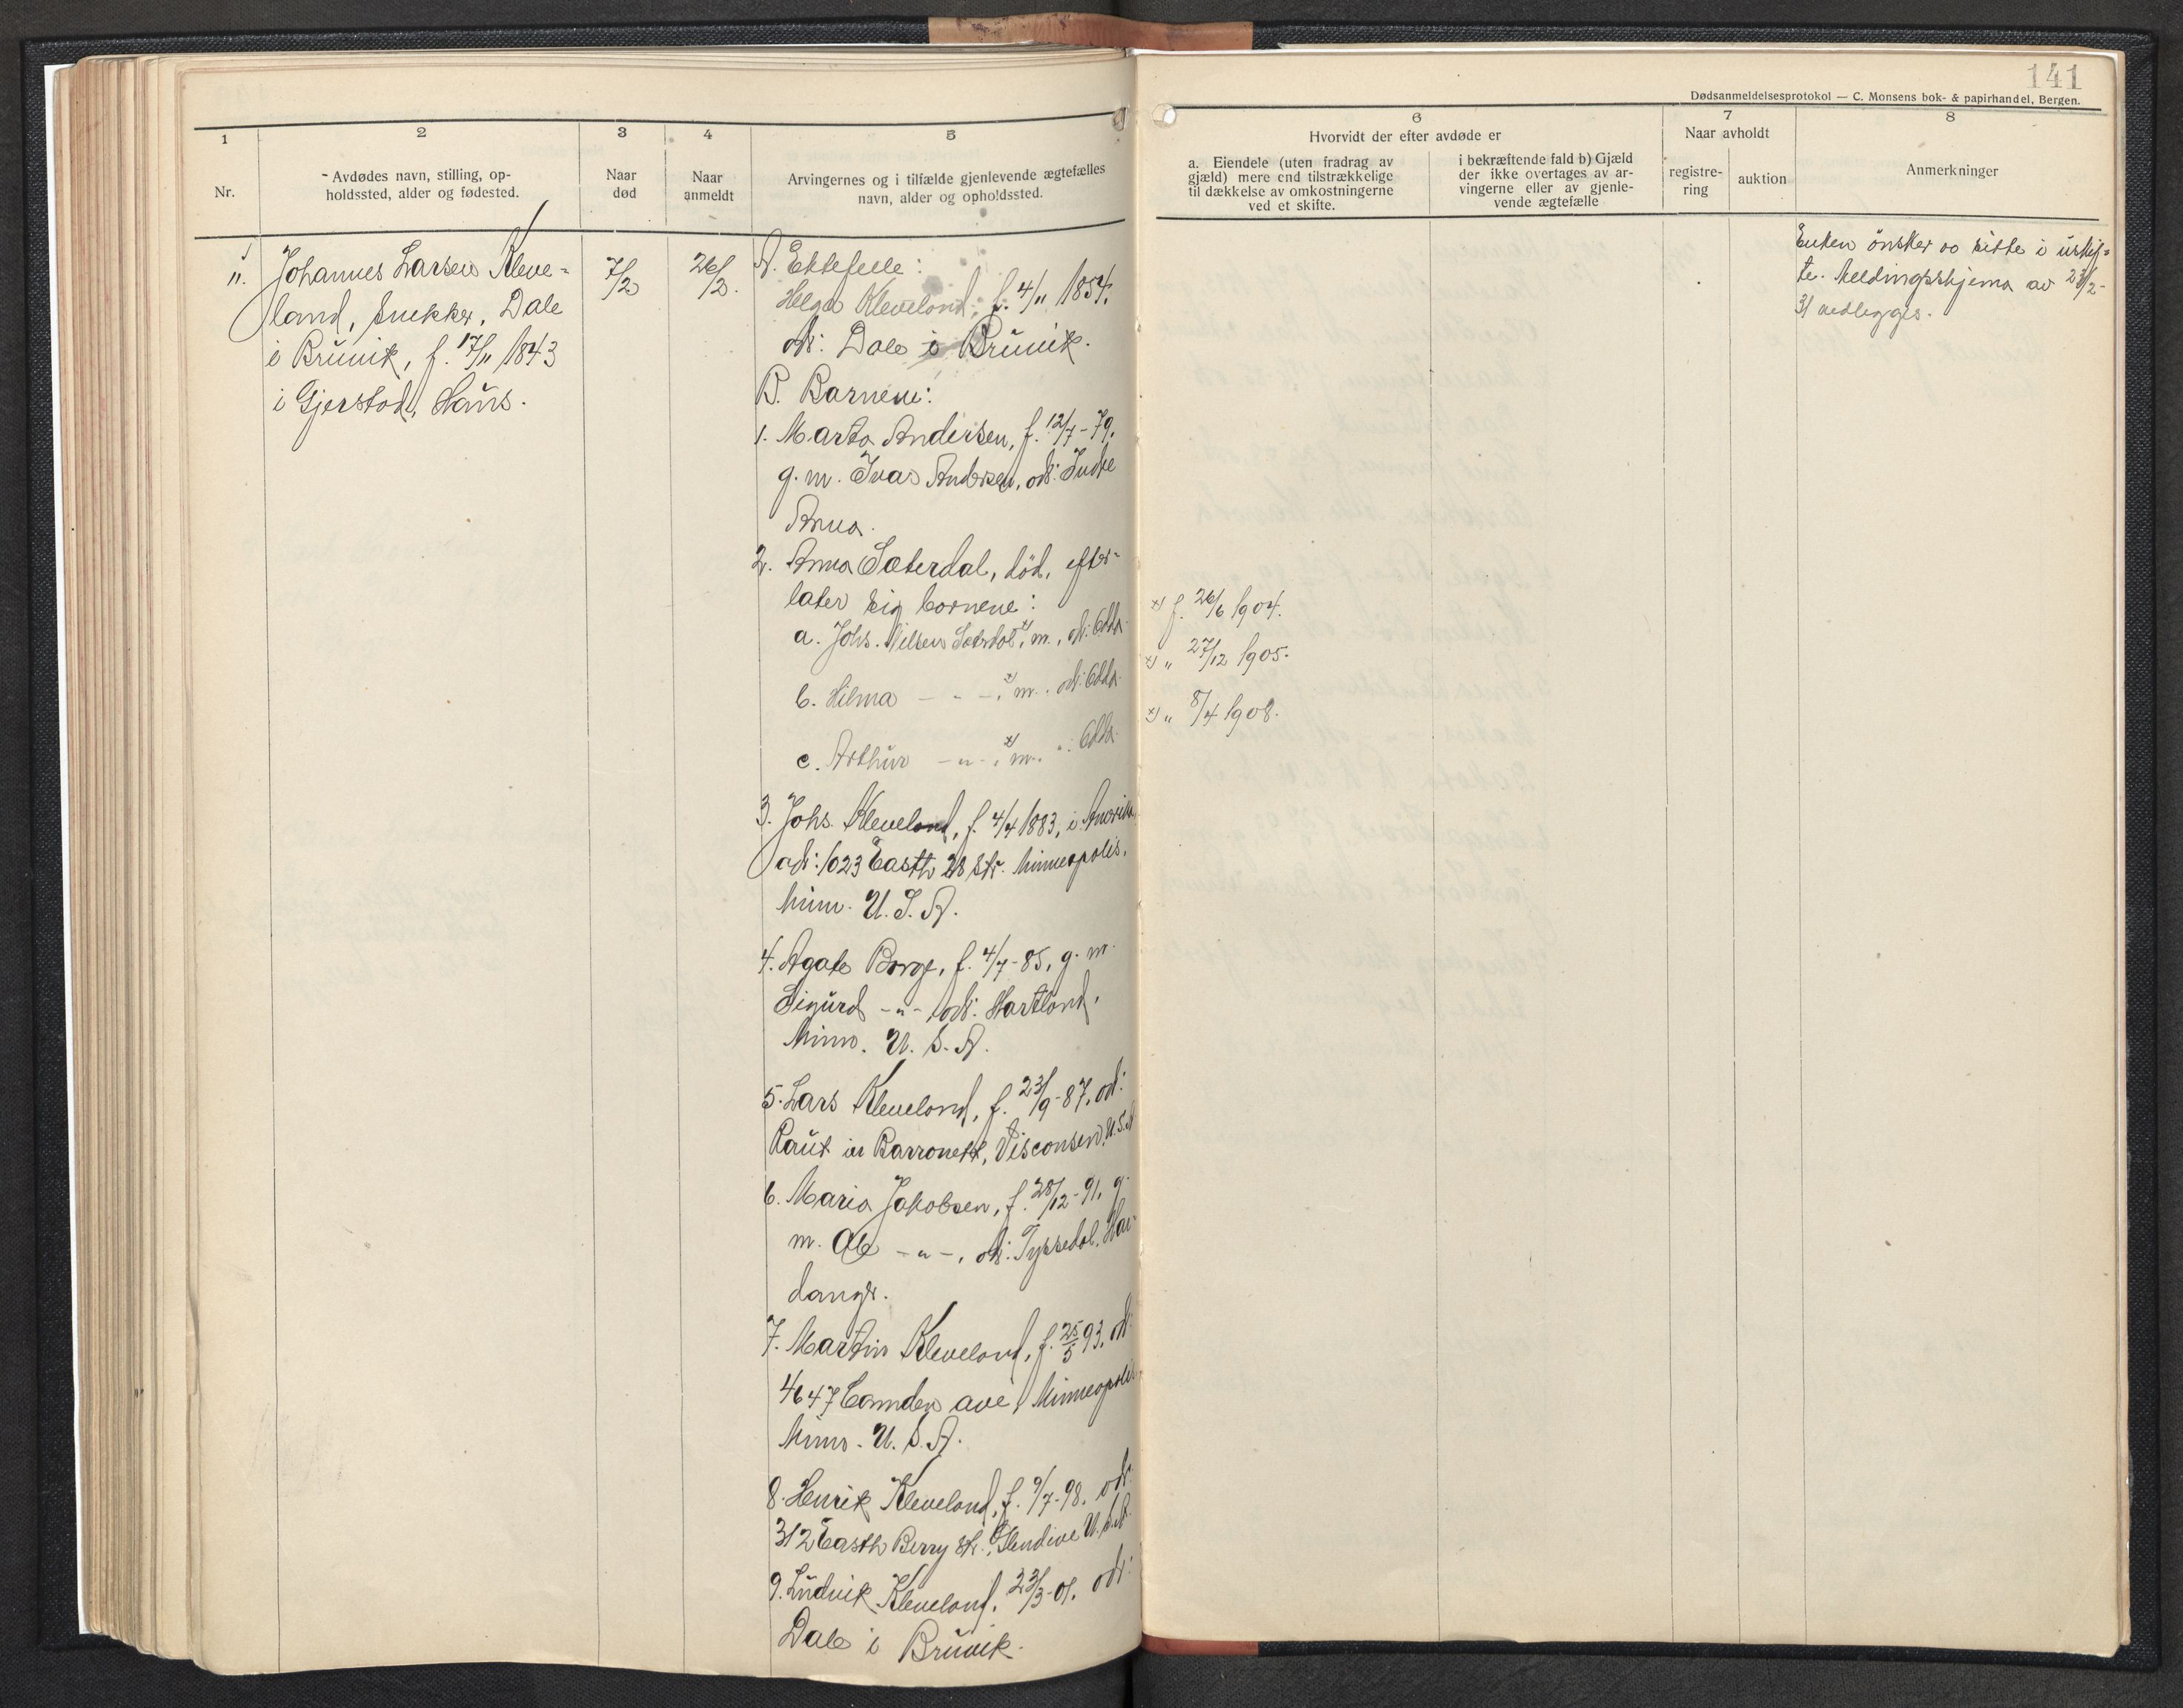 141
Dødsanmeldelsesprotokol — C. Monsens bok- & papirhandel, Bergen.
1
Nr.
2
Avdødes navn, stilling, op-
holdssted, alder og fødested.
3
Naar
død
4
Naar
anmeldt
5
Arvingernes og i tilfælde gjenlevende ægtefælles
navn, alder og opholdssted.
6
Hvorvidt der efter avdøde er
a. Eiendele (uten fradrag av
gjæld) mere end tilstrækkelige
til dækkelse av omkostningerne
ved et skifte.
i bekræftende fald b) Gjæld
der ikke overtages av ar-
vingerne eller av gjenle-
vende ægtefælle
7
Naar avholdt
registre-
ring
auktion
8
Anmerkninger
11.
Johannes Larsen Kleve-
land, snekker, Dale
i Bruvik, f. 17/11 1843
i Gjerstad, Haus.
7/2
26/2.
A. Ektefelle:
Helga Kleveland, f. 4/11 1854.
adr: Dale i Bruvik.
B. Barnene:
1. Marta Andersen, f. 12/7-79,
g. m. Ivar Andersen, adr: Indre
Arna.
2. Anna Sæterdal, död, efter-
later sig barnene:
a. Johs. Nilsen Sæterdal x), m., adr: Odda
b. Hilma - " - x), m., adr: Odda
c. Arthur - " - x), m. " : Odda
3. Johs Kleveland, f. 4/4 1883, i Amerika,
adr: 1023 Easth 28 str. Minneapolis,
Minn. U. S. A.
4. Agate Borge, f. 4/7-85, g. m.
Sigurd - " -, adr: Hartland,
Minn. U. S. A.
5. Lars Kleveland, f. 23/9-87, adr:
Raut in Barronett, Visconsen, U. S. A
6. Maria Jakobsen, f. 28/12-91, g.
m. Ole - " -, adr: Tyssedal, Har-
danger.
7. Martin Kleveland, f. 25/5 93, adr:
4647 Camden ave, Minneapolis
Minn. U. S. A.
8. Henrik Kleveland, f. 9/7-98, adr:
312 Easth Berry str., Glendive U. S. A.
9. Ludvik Kleveland, 23/3-01, adr:
Dale i Bruvik.
x) f. 26/6 1904.
x) " 27/12 1905.
x) " 8/4 1908.
Enken önsker og sitte i uskif-
te. Meldingsskjema av 23/2-
31 vedlegges.